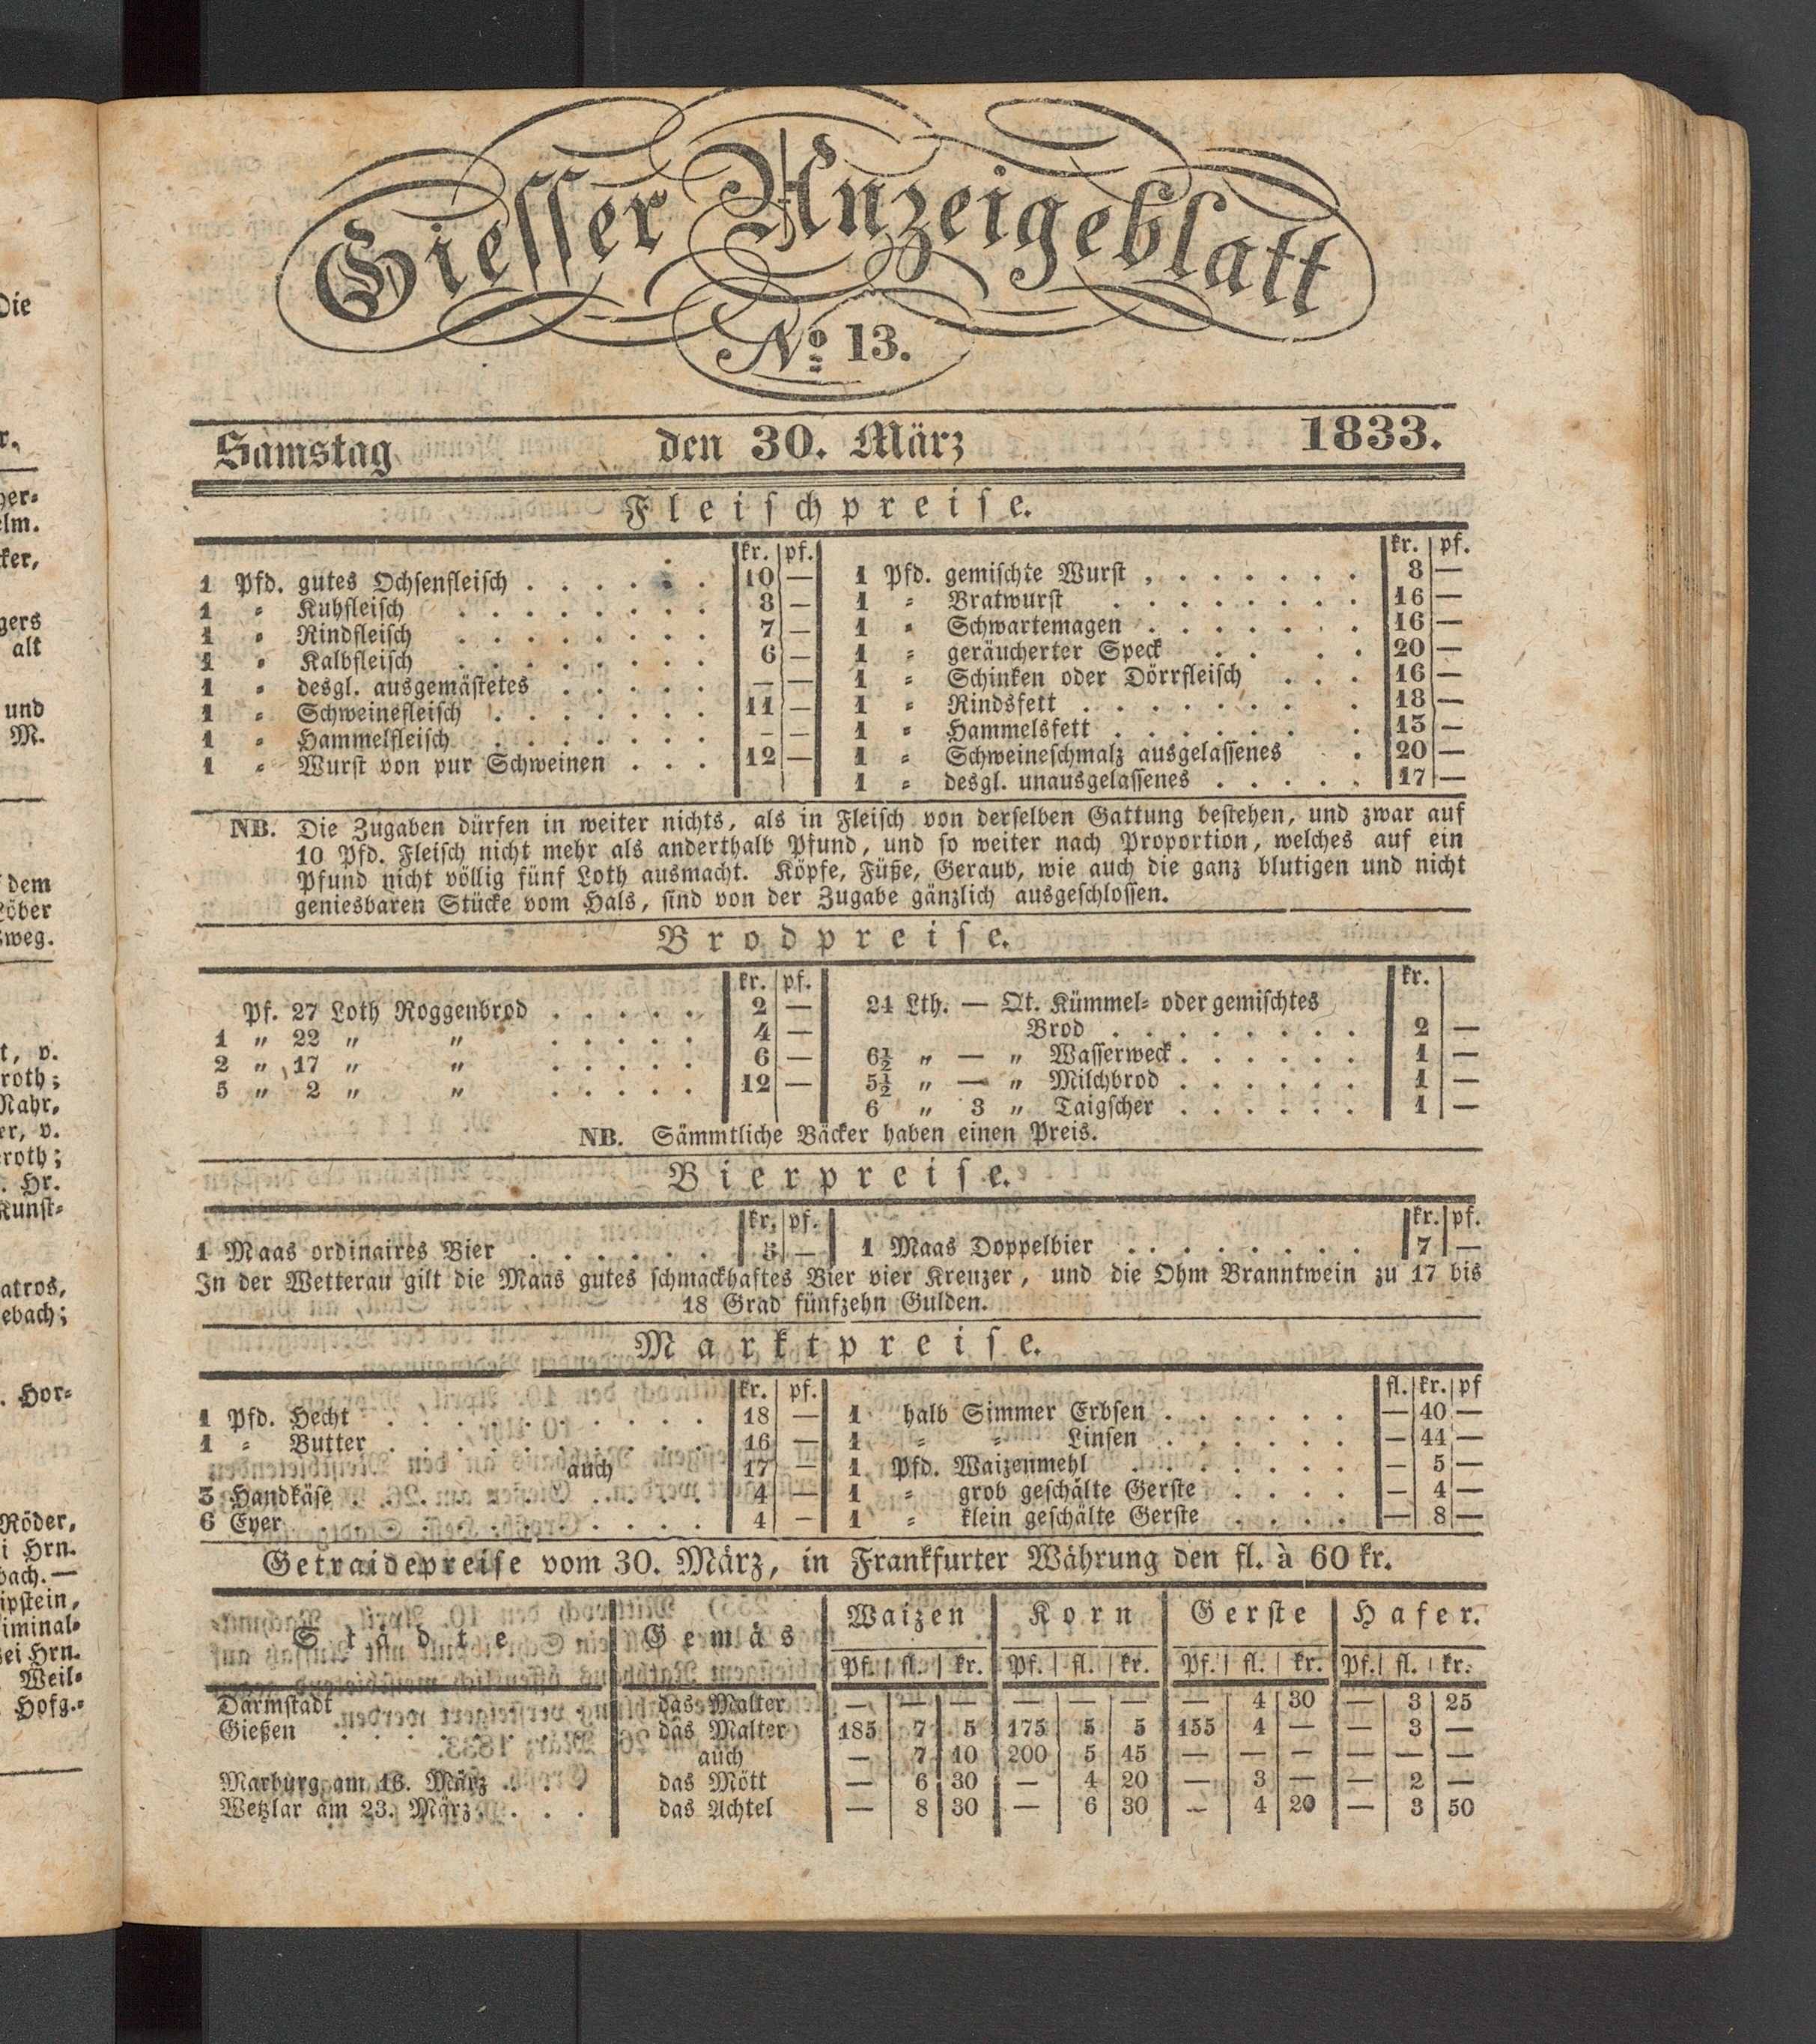 Giesser Anzeigeblatt
No. 13.
Samstag den 30. März 1833.
Fleischpreise.
kr. pf.
1 Pfd. gutes Ochsenfleisch . . . . . . 10 —
1 = Kuhfleisch . . . . . . . . 8 —
1 = Rindfleisch . . . . . . . . 7 —
1 = Kalbfleisch . . . . . . . . 6 —
1 = desgl. ausgemästetes . . . . . — —
1 = Schweinefleisch . . . . . . . 11 —
1 = Hammelfleisch . . . . . . . — —
1 = Wurst von pur Schweinen . . . 12 —
kr. pf.
1 Pfd. gemischte Wurst . . . . . . . 8 —
1 = Bratwurst . . . . . . . 16 —
1 = Schwartemagen . . . . . . 16 —
1 = geräucherter Speck . . . . 20 —
1 = Schinken oder Dörrfleisch . . . 16 —
1 = Rindsfett . . . . . . . 18 —
1 = Hammelsfett . . . . . . 15 —
1 = Schweineschmalz ausgelassenes . 20 —
1 = desgl. unausgelassenes . . . . . 17 —
NB. Die Zugaben dürfen in weiter nichts, als in Fleisch von derselben Gattung bestehen, und zwar auf
10 Pfd. Fleisch nicht mehr als anderthalb Pfund, und so weiter nach Proportion, welches auf ein
Pfund nicht völlig fünf Loth ausmacht. Köpfe, Füße, Geraub, wie auch die ganz blutigen und nicht
geniesbaren Stücke vom Hals, sind von der Zugabe gänzlich ausgeschlossen.
Brodpreise.
kr. pf.
Pf. 27 Loth Roggenbrod . . . . . 2 —
1 " 22 " " . . . . . 4 —
2 " 17 " " . . . . . 6 —
5 " 2 " " . . . . . 12 —
kr.
24 Lth. — Qt. Kümmel= oder gemischtes
Brod . . . . . . . . 2 —
6½ " — " Wasserweck . . . . . . 1 —
5½ " — " Milchbrod . . . . . . 1 —
6 " 3 " Taigscher . . . . . . 1 —
NB. Sämmtliche Bäcker haben einen Preis.
Bierpreise.
kr. pf.
1 Maas ordinaires Bier . . . . . . 5 —
kr. pf.
1 Maas Doppelbier . . . . . . . 7 —
In der Wetterau gilt die Maas gutes schmackhaftes Bier vier Kreuzer, und die Ohm Branntwein zu 17 bis
18 Grad fünfzehn Gulden.
Marktpreise.
kr. pf.
1 Pfd. Hecht . . . . . . . . . 18 —
1 = Butter . . . . . . . . . 16 —
auch 17 —
3 Handkäse . . . . . . . . . 4 —
6 Eyer . . . . . . . . . . 4 —
fl. kr. pf
1 halb Simmer Erbsen . . . . . . — 40 —
1 = = Linsen . . . . . . — 44 —
1 Pfd. Waizenmehl . . . . . . . — 5 —
1 = grob geschälte Gerste . . . . — 4 —
1 = klein geschälte Gerste . . . . — 8 —
Getraidepreise vom 30. März, in Frankfurter Währung den fl. à 60 kr.
Städte Gemäs Waizen Korn Gerste Hafer.
Pf. fl. kr. Pf. fl. kr. Pf. fl. kr. Pf. fl. kr.
Darmstadt . . . . . . das Malter — — — — — — — 4 30 — 3 25
Gießen . . . . . . . das Malter 185 7 5 175 5 5 155 4 — — 3 —
auch — 7 10 200 5 45 — — — — — —
Marburg am 16. März . . . . das Mött — 6 30 — 4 20 — 3 — — 2 —
Wetzlar am 23. März . . . . das Achtel — 8 30 — 6 30 — 4 20 — 3 50